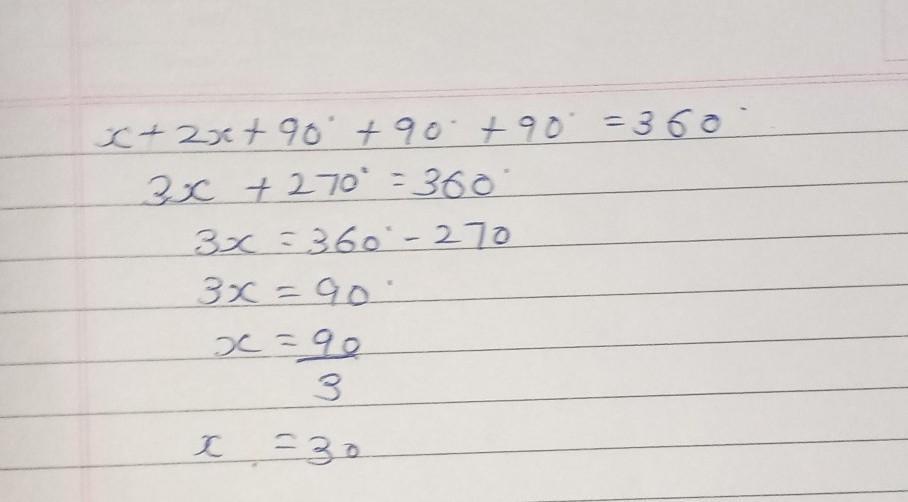 x + 2x + 90° + 90° + 90° = 360°
3x + 270° = 360°
3x = 360° - 270
3x = 90°
x = 90
3
x = 30